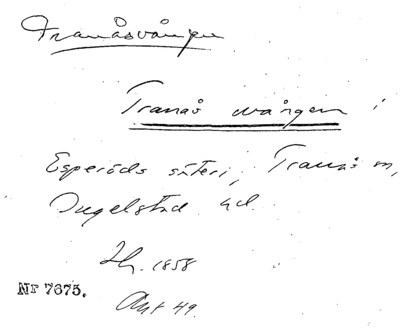 Tranåsvången
Tranås vången i
Esperöds säteri, Tranås sn,
Ingelstad hd.
Lh. 1858
Nr 7675.
Akt 49.